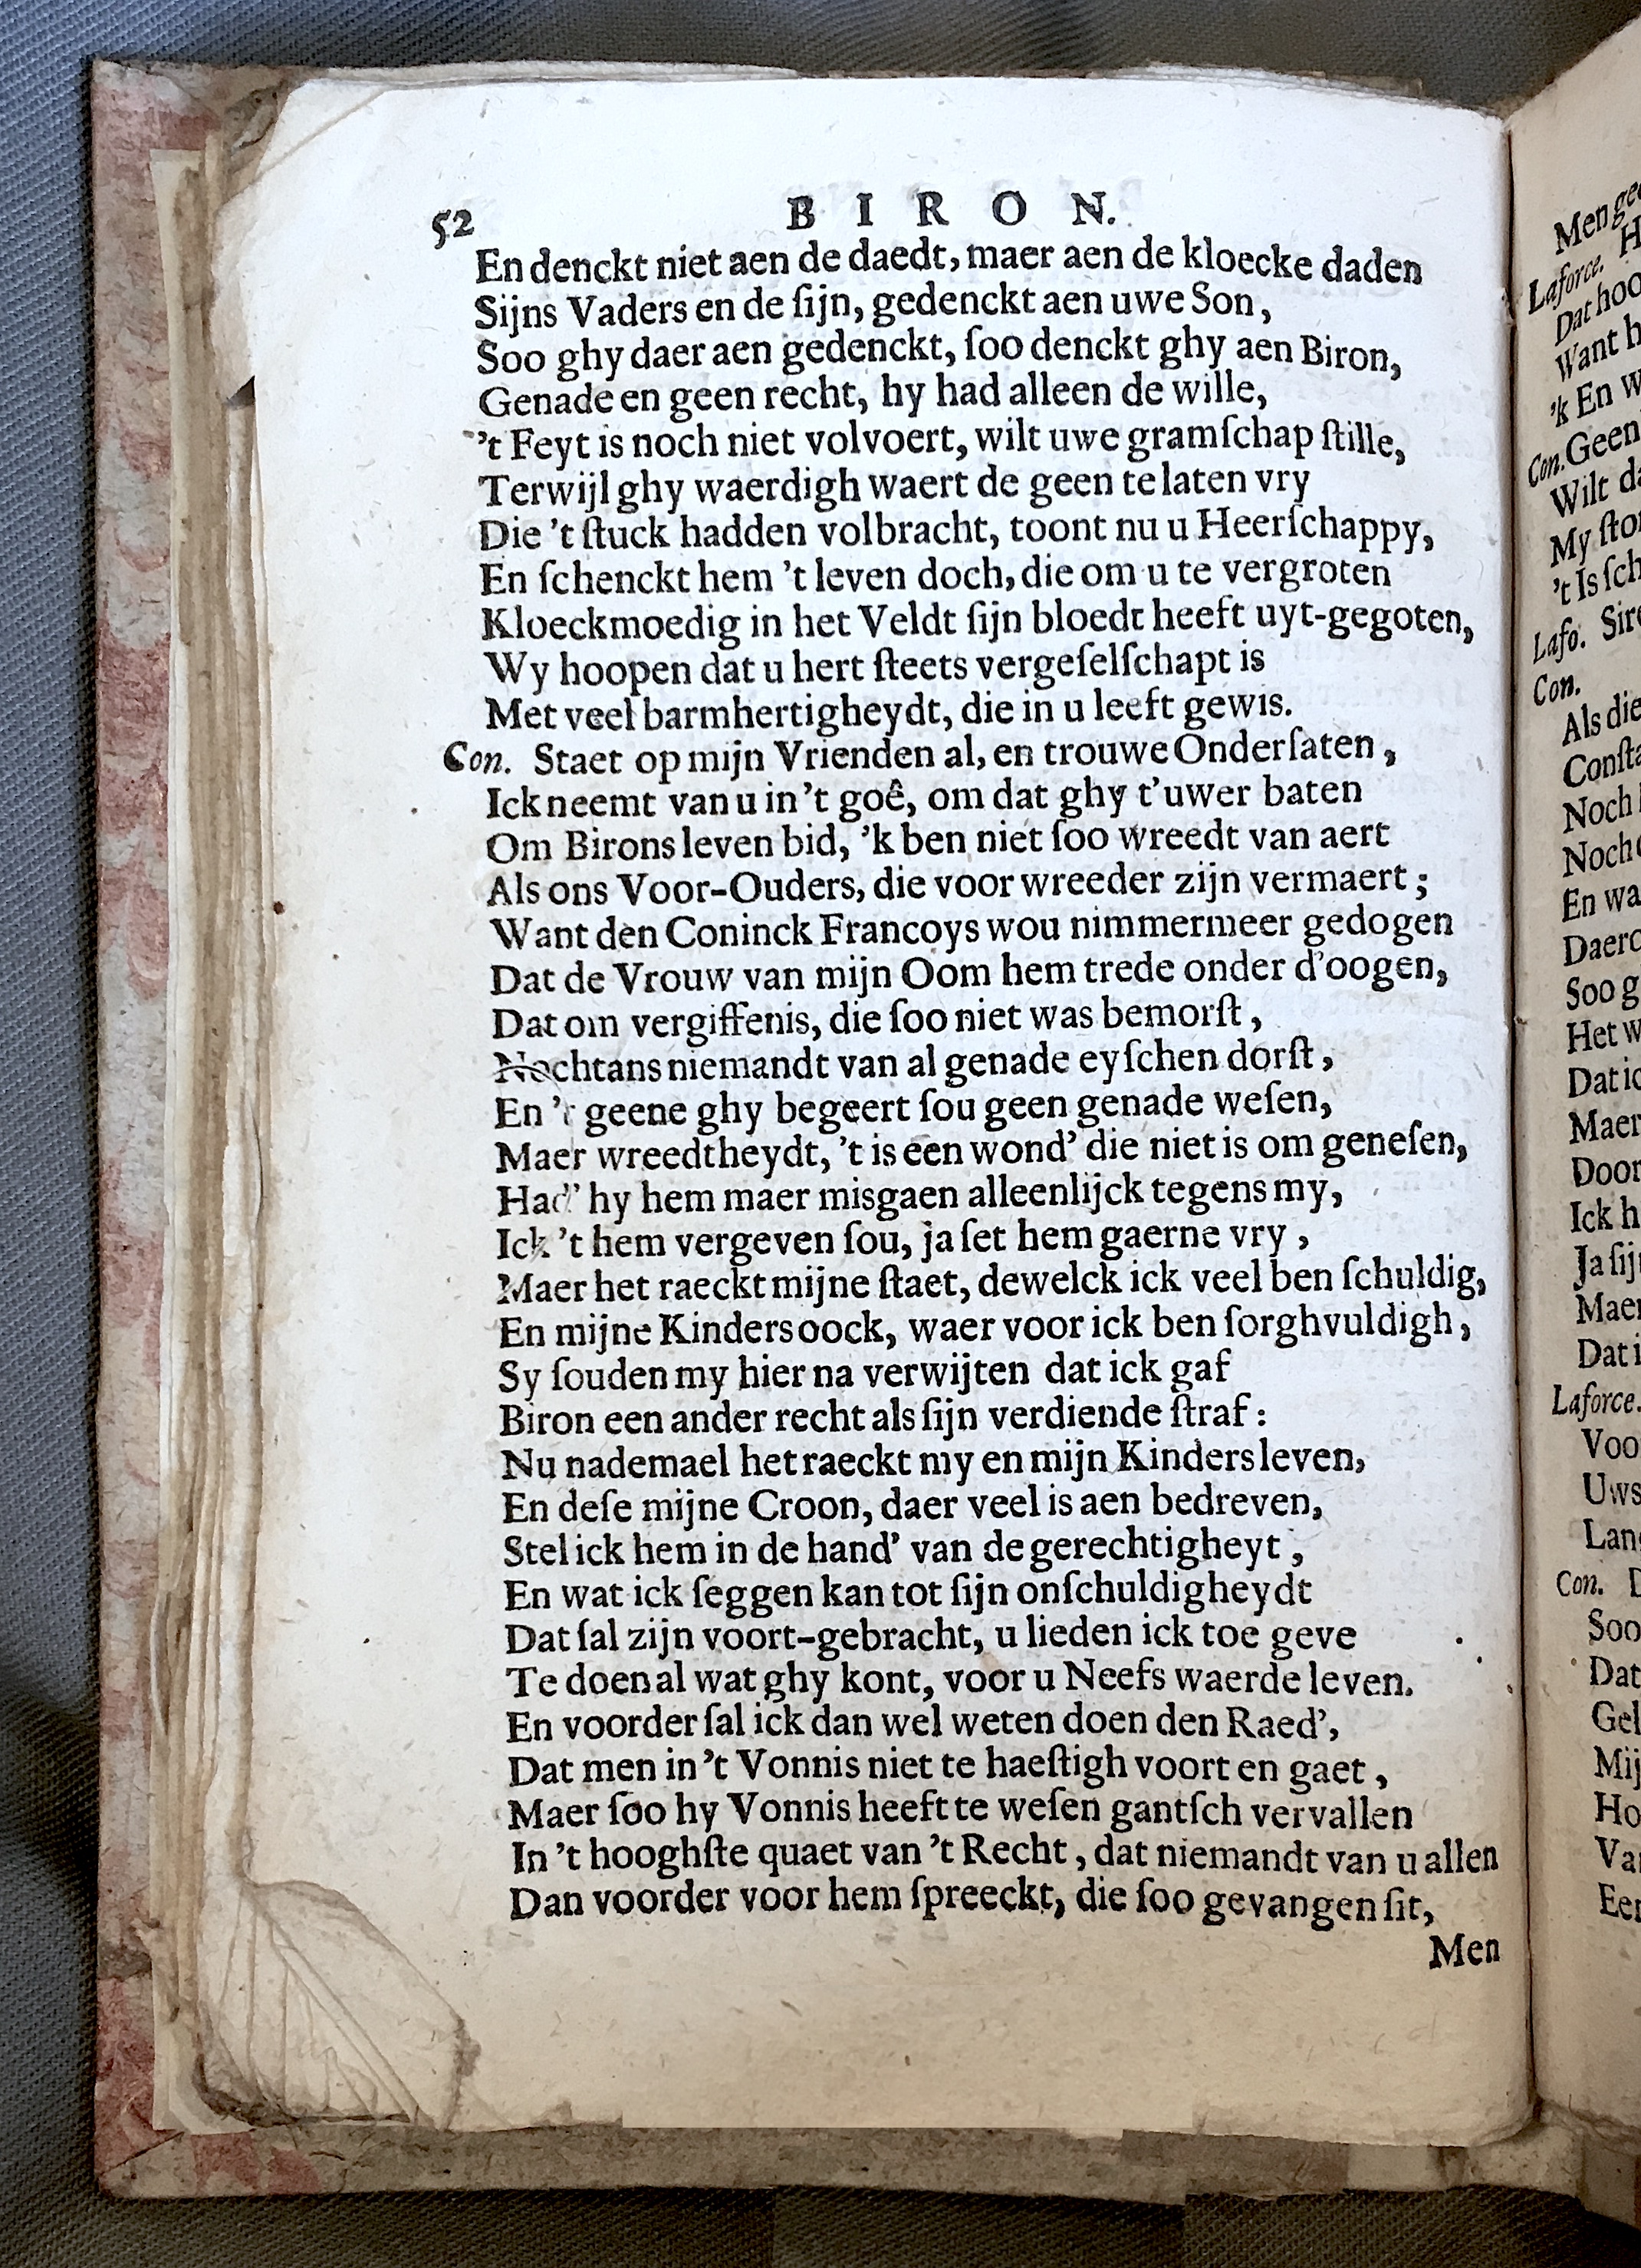 52 BIRON.
En denckt niet aen de daedt, maer aen de kloecke daden
Sijns Vaders en de ſijn, gedenckt aen uwe Son,
Soo ghy daer aen gedenckt, ſoo denckt ghy aen Biron,
Genade en geen recht, hy had alleen de wille,
't Feyt is noch niet volvoert, wilt uwe gramſchap ſtille,
Terwijl ghy waerdigh waert de geen te laten vry
Die 't ſtuck hadden volbracht, toont nu u Heerſchappy,
En ſchenckt hem 't leven doch, die om u te vergroten
Kloeckmoedig in het Veldt ſijn bloedt heeft uyt-gegoten,
Wy hoopen dat u hert ſteets vergeſelſchapt is
Met veel barmhertigheydt, die in u leeft gewis.
Con. Staet op mijn Vrienden al, en trouwe Onderſaten,
Ick neemt van u in 't goê, om dat ghy t'uwer baten
Om Birons leven bid, 'k ben niet ſoo wreedt van aert
Als ons Voor-Ouders, die voor wreeder zijn vermaert;
Want den Coninck Francoys wou nimmermeer gedogen
Dat de Vrouw van mijn Oom hem trede onder d'oogen,
Dat om vergiffenis, die ſoo niet was bemorſt,
Nochtans niemandt van al genade eyſchen dorſt,
En 't geene ghy begeert ſou geen genade weſen,
Maer wreedtheydt, 't is een wond' die niet is om geneſen,
Had' hy hem maer misgaen alleenlijck tegens my,
Ick 't hem vergeven ſou, ja ſet hem gaerne vry,
Maer het raeckt mijne ſtaet, dewelck ick veel ben ſchuldig,
En mijne Kinders oock, waer voor ick ben ſorghvuldigh,
Sy ſouden my hier na verwijten dat ick gaf
Biron een ander recht als ſijn verdiende ſtraf:
Nu nademael het raeckt my en mijn Kinders leven,
En deſe mijne Croon, daer veel is aen bedreven,
Stel ick hem in de hand' van de gerechtigheyt,
En wat ick ſeggen kan tot ſijn onſchuldigheydt
Dat ſal zijn voort-gebracht, u lieden ick toe geve
Te doen al wat ghy kont, voor u Neefs waerde leven.
En voorder ſal ick dan wel weten doen den Raed',
Dat men in 't Vonnis niet te haeſtigh voort en gaet,
Maer ſoo hy Vonnis heeft te weſen gantſch vervallen
In 't hooghſte quaet van 't Recht, dat niemandt van u allen
Dan voorder voor hem ſpreeckt, die ſoo gevangen ſit,
Men
Laforce.
Dat
Want
'k En
Con. Geen
Wilt
My
't Is
Lafo.
Con.
Als die
Noch
Noch
En
Soo
Het
Dat
Maer
Door
Ick
Ja
Maer
Dat
Laforce.
Con.
Soo
Dat